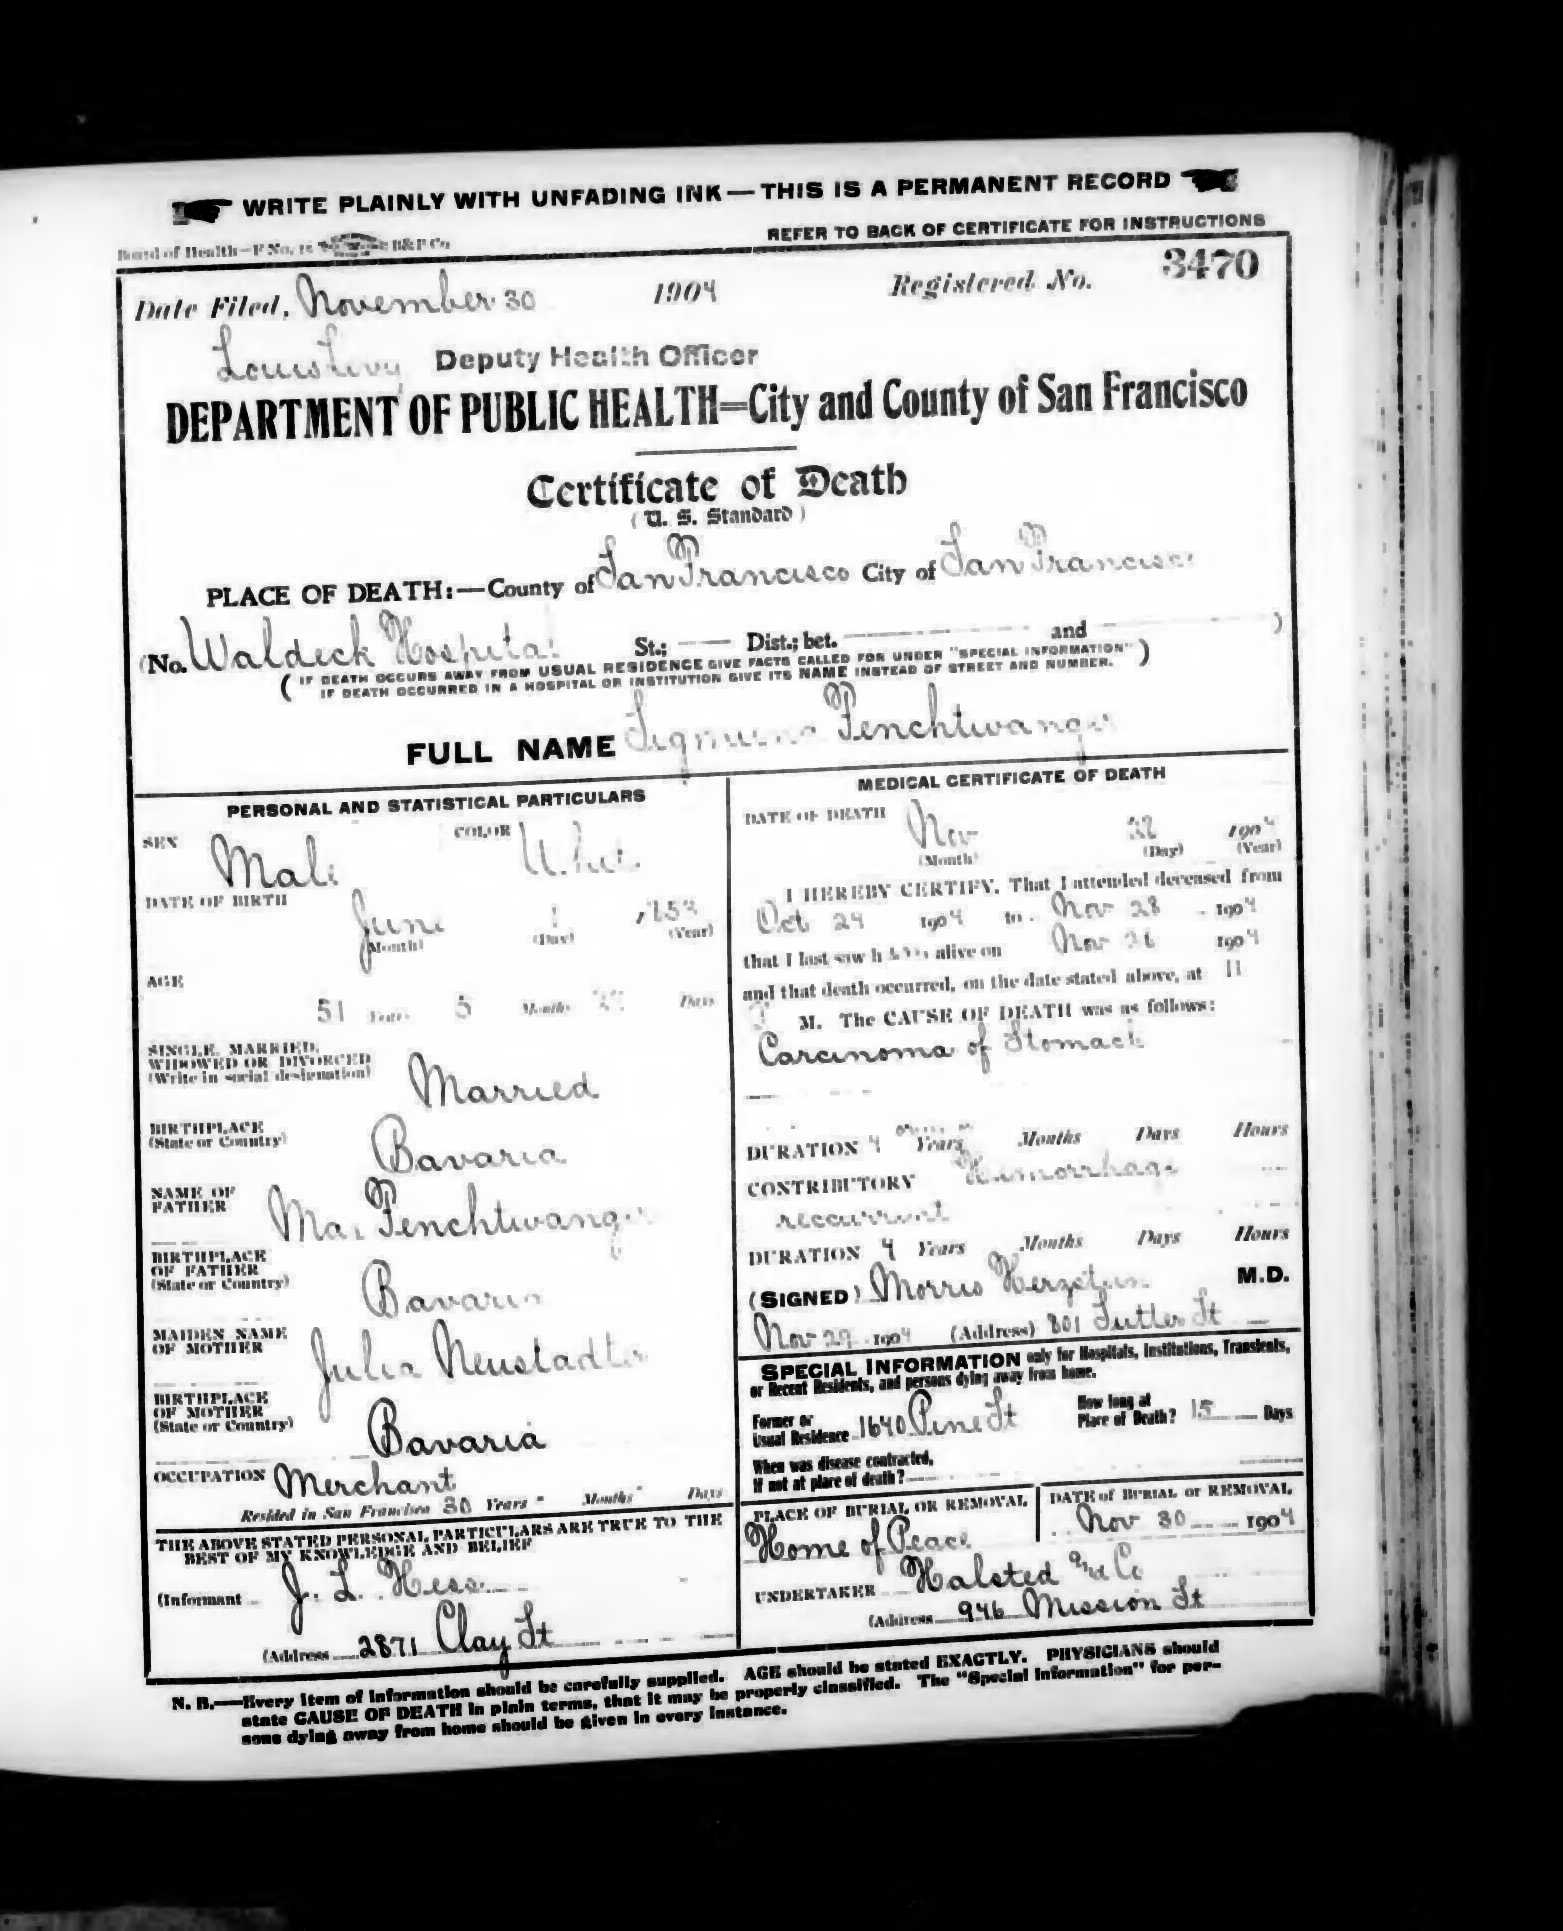 WRITE PLAINLY WITH UNFADING INK — THIS IS A PERMANENT RECORD
Board of Health—F No. 15 B&P Co
REFER TO BACK OF CERTIFICATE FOR INSTRUCTIONS
Date Filed, November 30 1904 Registered No. 3470
Louis Levy Deputy Health Officer
DEPARTMENT OF PUBLIC HEALTH=City and County of San Francisco
Certificate of Death
(U. S. Standard)
PLACE OF DEATH:—County of San Francisco City of San Francisco
(No. Waldeck Hospital St.; Dist.; bet. and )
( IF DEATH OCCURS AWAY FROM USUAL RESIDENCE GIVE FACTS CALLED FOR UNDER "SPECIAL INFORMATION" )
IF DEATH OCCURRED IN A HOSPITAL OR INSTITUTION GIVE ITS NAME INSTEAD OF STREET AND NUMBER.
FULL NAME Sigmund Fenchtwanger
PERSONAL AND STATISTICAL PARTICULARS
SEX Male COLOR White
DATE OF BIRTH
June 1 1853
(Month) (Day) (Year)
AGE
51 Years 5 Months 27 Days
SINGLE, MARRIED,
WIDOWED OR DIVORCED
(Write in social designation) Married
BIRTHPLACE
(State or Country) Bavaria
NAME OF
FATHER Max Fenchtwanger
BIRTHPLACE
OF FATHER
(State or Country) Bavaria
MAIDEN NAME
OF MOTHER Julia Neustadter
BIRTHPLACE
OF MOTHER
(State or Country) Bavaria
OCCUPATION Merchant
Resided in San Francisco 30 Years - Months - Days
THE ABOVE STATED PERSONAL PARTICULARS ARE TRUE TO THE
BEST OF MY KNOWLEDGE AND BELIEF
(Informant J. L. Hess
(Address 2871 Clay St
MEDICAL CERTIFICATE OF DEATH
DATE OF DEATH Nov 28 1904
(Month) (Day) (Year)
I HEREBY CERTIFY, That I attended deceased from
Oct 24 1904 to Nov 28 1904
that I last saw him alive on Nov 28 1904
and that death occurred, on the date stated above, at 11
M. The CAUSE OF DEATH was as follows:
Carcinoma of Stomach
DURATION 4 Years Months Days Hours
CONTRIBUTORY Hemorrhage
reccurrent
DURATION 4 Years Months Days Hours
(SIGNED) Morris Herzstein M.D.
Nov 29 1904 (Address) 801 Sutter St
SPECIAL INFORMATION only for Hospitals, Institutions, Transients,
or Recent Residents, and persons dying away from home.
Former or
Usual Residence 1640 Pine St
How long at
Place of Death? 15 Days
When was disease contracted,
If not at place of death?
PLACE OF BURIAL OR REMOVAL
Home of Peace
DATE of BURIAL or REMOVAL
Nov 30 1904
UNDERTAKER Halsted and Co
(Address 946 Mission St
N. B.—Every item of information should be carefully supplied. AGE should be stated EXACTLY. PHYSICIANS should
state CAUSE OF DEATH in plain terms, that it may be properly classified. The "Special Information" for per-
sons dying away from home should be given in every instance.